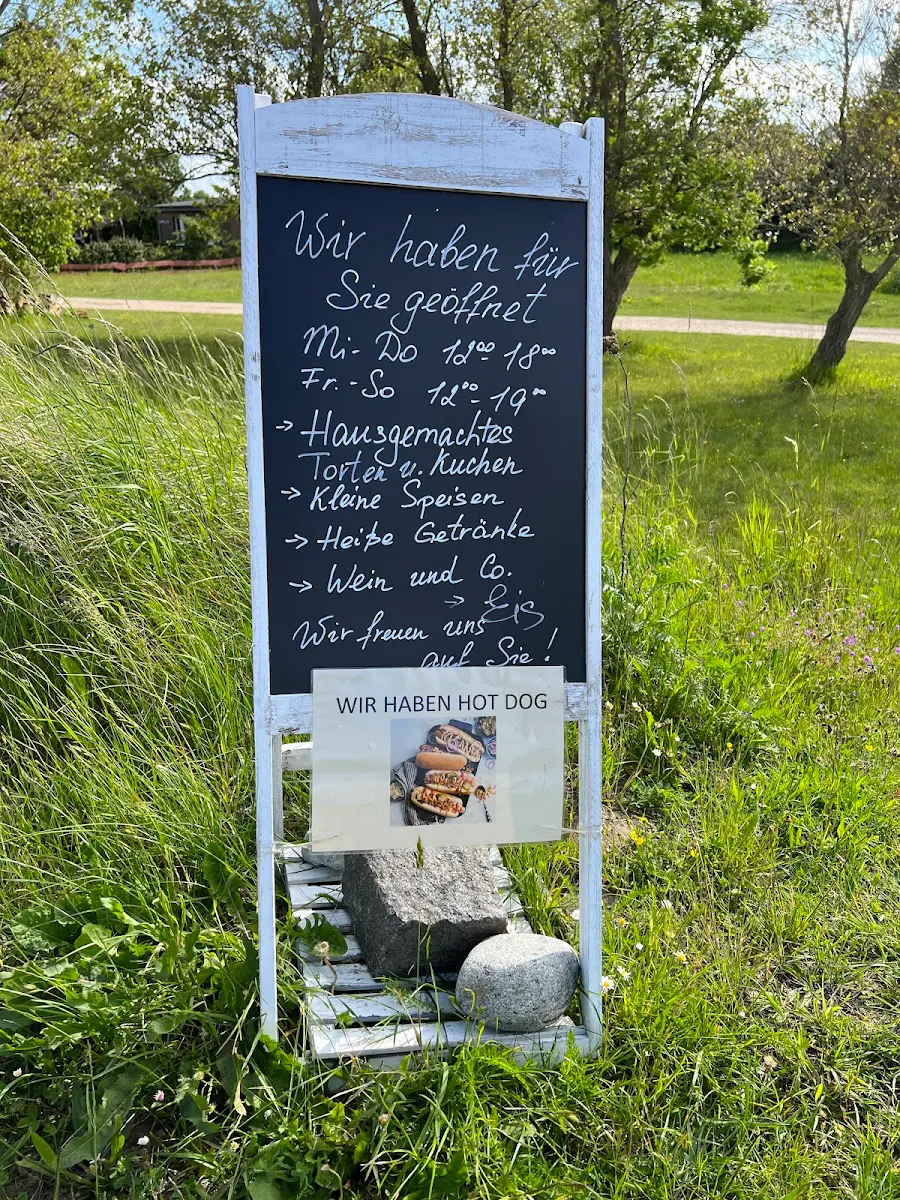 Wir haben für
Sie geöffnet
Mi- Do 12⁰⁰ 18⁰⁰
Fr.-So 12⁰⁰-19⁰⁰
→ Hausgemachtes
Torten u. Kuchen
→ Kleine Speisen
→ Heiße Getränke
→ Wein und Co.
→ Eis
Wir freuen uns
auf Sie!
WIR HABEN HOT DOG